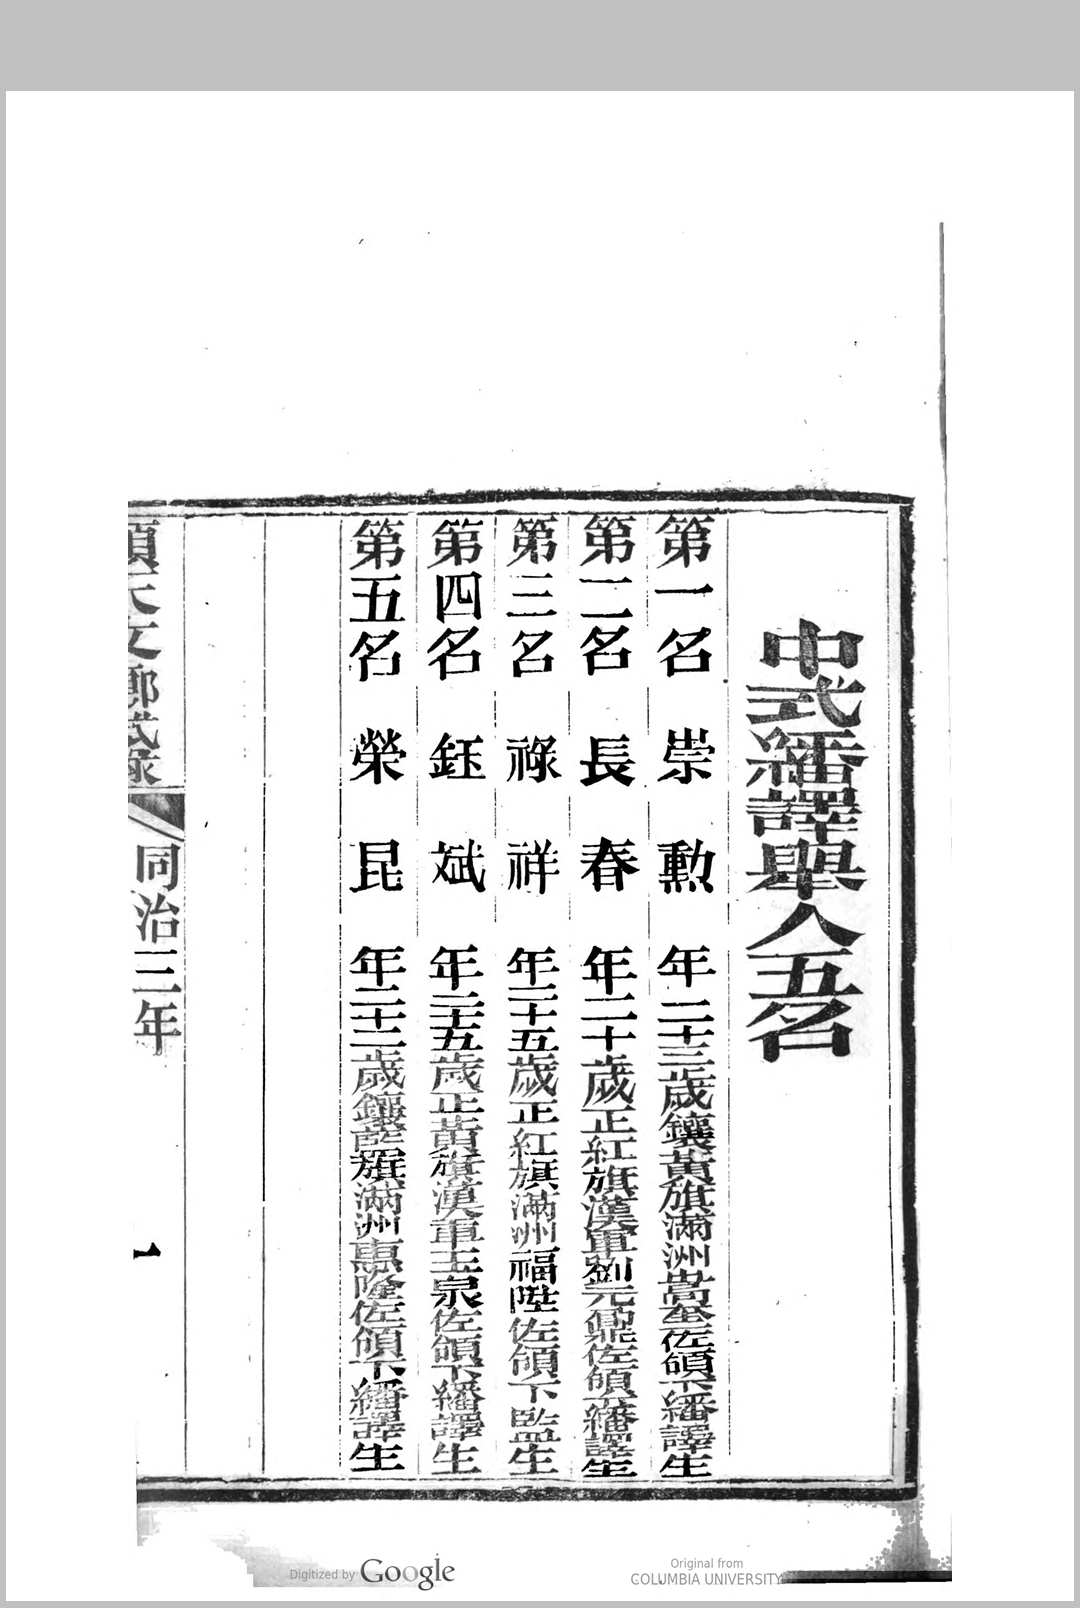 中式繙譯舉人五名
第一名 崇勳 年二十三歲鑲黃旗滿洲崇奎佐領下繙譯生
第二名 長春 年二十歲正紅旗漢軍劉元鼎佐領下繙譯生
第三名 祿祥 年二十五歲正紅旗滿洲福陞佐領下監生
第四名 鈺斌 年二十五歲正黃旗漢軍王泉佐領下繙譯生
第五名 榮昆 年二十三歲鑲藍旗滿洲惠隆佐領下繙譯生
順天文鄉試錄 同治三年 一
Digitized by Google
Original from
COLUMBIA UNIVERSITY